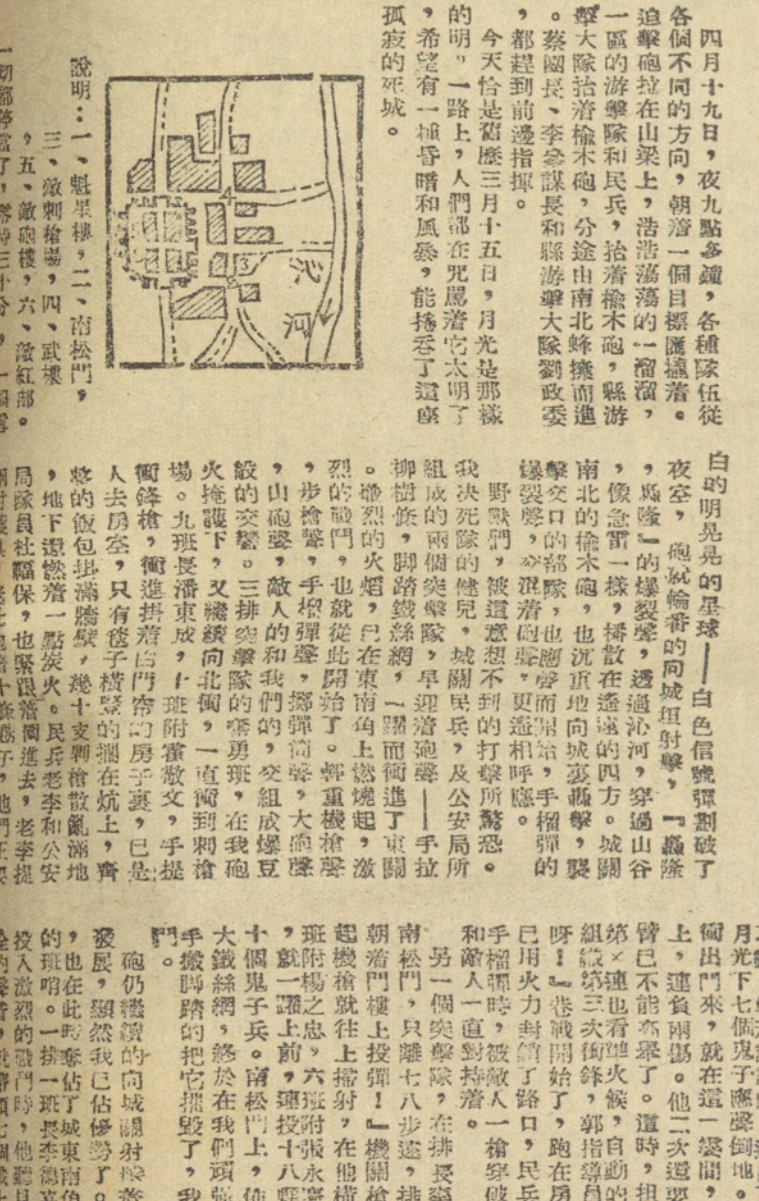 四月十九日，夜九點多鐘，各種隊伍從
各個不同的方向，朝着一個目標匯攏着。
迫擊砲拉在山梁上，浩浩蕩蕩的一溜溜，
一區的游擊隊和民兵，抬着榆木砲，縣游
擊大隊抬着榆木砲，分途由南北蜂擁而進
。蔡團長、李參謀長和縣游擊大隊劉政委
，都趕到前邊指揮。
今天恰是舊歷三月十五日，月光是那樣
的明。一路上，人們都在咒罵着它太明了
，希望有一種昏暗和風暴，能捲吞了這座
孤寂的死城。
沁河
說明：一、魁星樓，二、南松門，
三、敵刺槍場，四、武樓
，五、敵砲樓，六、敵紅部。
白的明晃晃的星球——白色信號彈劃破了
夜空，砲就輪番的向城垣射擊，『轟隆
，轟隆』的爆裂聲，透過沁河，穿過山谷
，像急雷一樣，播散在遙遠的四方。城關
南北的榆木砲，也沉重地向城裏轟擊，襲
擊交口的部隊，也應聲而開始，手榴彈的
爆裂聲，交混着砲聲，更遙相呼應。
野獸們，被這意想不到的打擊所驚恐。
我决死隊的健兒，城關民兵，及公安局所
組成的兩個突擊隊，早迎着砲聲——手拉
柳樹條，脚踏鐵絲網，一躍而衝進了東關
。熾烈的火焰，已在東南角上燃燒起，激
烈的戰鬥，也就從此開始了。輕重機槍聲
，步槍聲，手榴彈聲，擲彈筒聲，大砲聲
，山砲聲，敵人的和我們的，交組成爆豆
般的交響。三排突擊隊的奮勇班，在我砲
火掩護下，又繼續向北衝，一直衝到刺槍
場。九班長潘東成，十班附霍散文，手提
衝鋒槍，衝進掛着白門帘的房子裏，已是
人去房空，只有毯子橫豎的擱在炕上，齊
整的飯包掛滿牆壁，幾十支剿槍散亂滿地
，地下還燃着一點炭火。民兵老李和公安
局隊員杜福保，也緊跟着闖進去，老李提
月光下七個鬼子應聲倒地。
衝出門來，就在這一
上，連負兩傷。他二次還要
臂已不能高舉了。這時，担
第×連也看準火候，自動的
組織第三次衝鋒，郭指導員
呀！』巷戰開始了，跑在房
已用火力封鎖了路口，民兵
手榴彈時，被敵人一槍穿破
和敵人一直對持着。
另一個突擊隊，在排長
南松門，只離七八步遠，排
朝着門樓上投彈！』機關槍
起機槍就往上掃射，在他橫
班附楊之忠，六班附張永
，就一躍上前，連投十八
十個鬼子兵。南松門上，
大鐵絲網，終於在我們頑强
手搬脚踏的把它摧毀了，我
門。
砲仍繼續的向城關射
發展，顯然我已佔優勢了。
，也在此時奪佔了城東南角
的班哨。一排一班長李
投入激烈的戰鬥時，他聽見